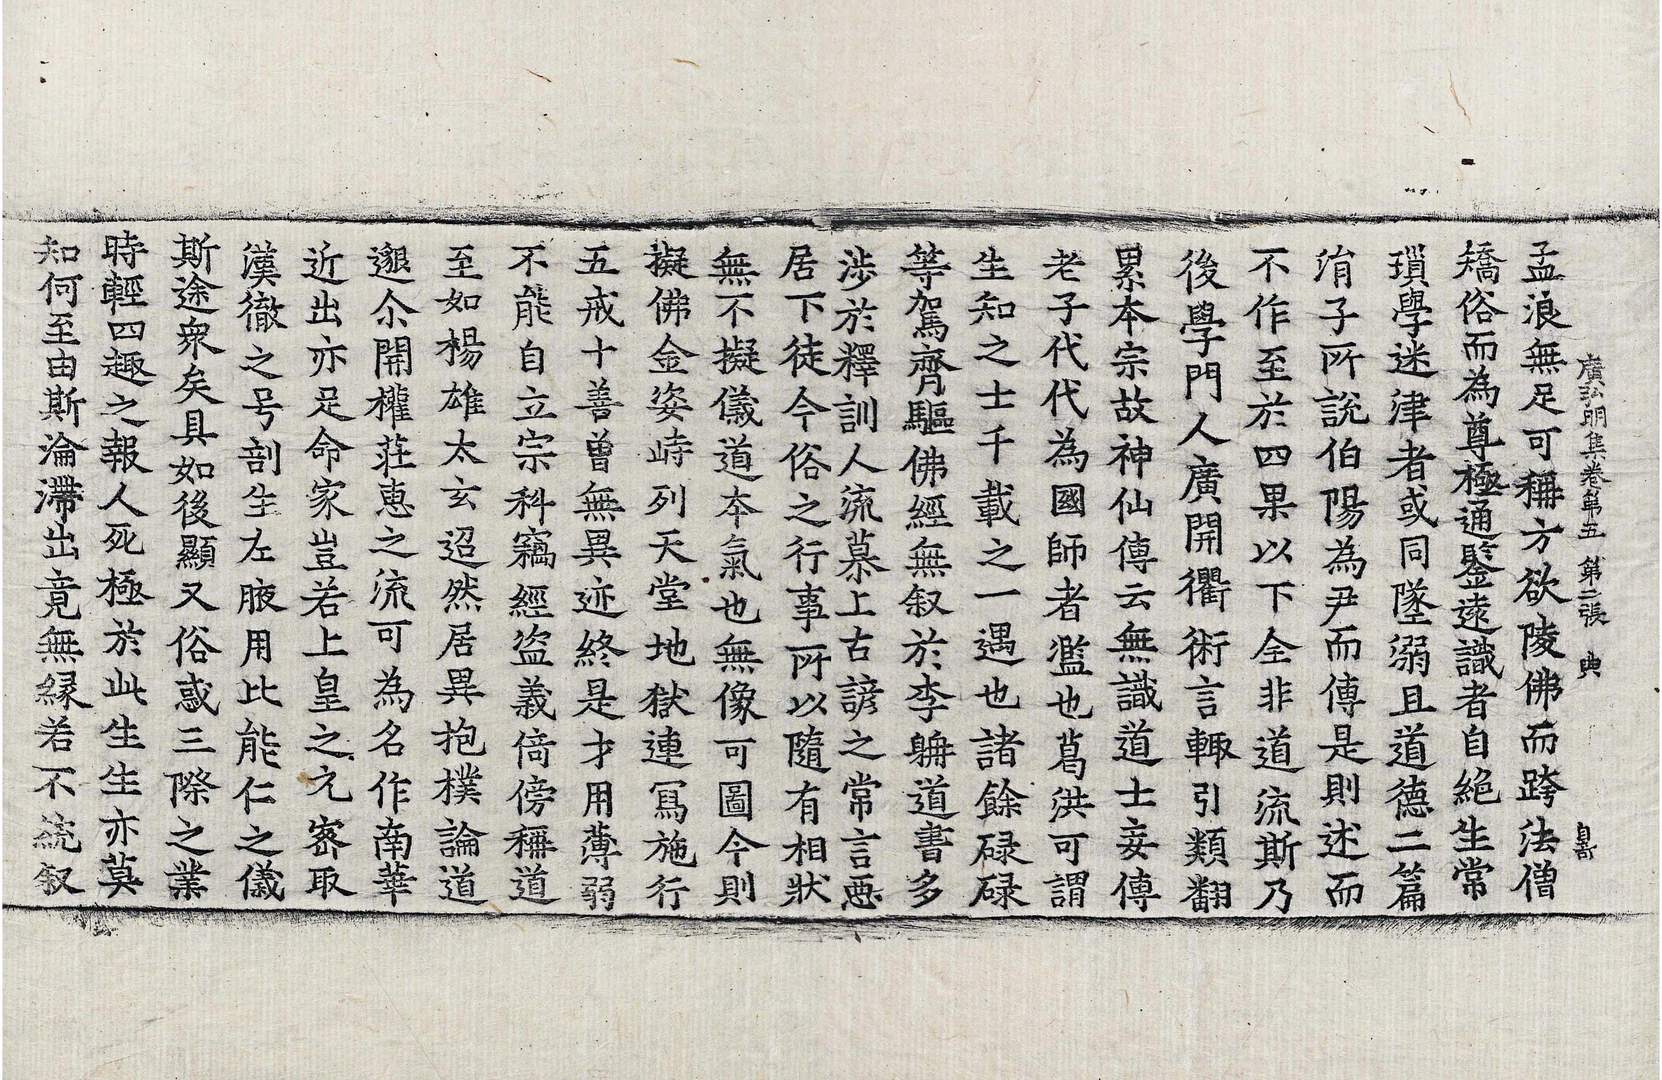 廣弘明集卷第五 第二張 典
孟浪無足可稱方欲陵佛而跨法僧
矯俗而為尊極通鑒遠識者自絕生常
瑣學迷津者或同墜溺且道德二篇
涓子所說伯陽為尹而傳是則述而
不作至於四果以下全非道流斯乃
後學門人廣開衢術言輙引類翻
累本宗故神仙傳云無識道士妄傳
老子代代為國師者濫也葛洪可謂
生知之士千載之一遇也諸餘碌碌
等駕齊驅佛經無叙於李耼道書多
涉於釋訓人流慕上古諺之常言惡
居下徒今俗之行事所以隨有相狀
無不擬儀道本氣也無像可圖今則
擬佛金姿峙列天堂地獄連寫施行
五戒十善曾無異迹終是才用薄弱
不能自立宗科竊經盜義倚傍稱道
至如楊雄太玄迢然居異抱樸論道
邈尒開權莊惠之流可為名作南華
近出亦足命家豈若上皇之元密取
漢徹之号剖生左腋用比能仁之儀
斯途衆矣具如後顯又俗惑三際之業
時輕四趣之報人死極於此生生亦莫
知何至由斯淪滯出竟無緣若不統叙